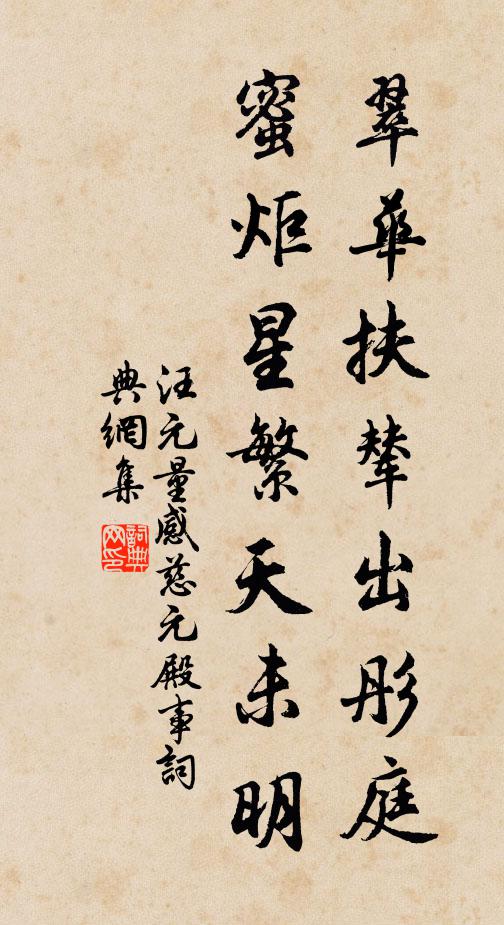 翠華扶輦出彤庭
蜜炬星繁天未明
汪元量感慈元殿事詞
典網集
詞典網印